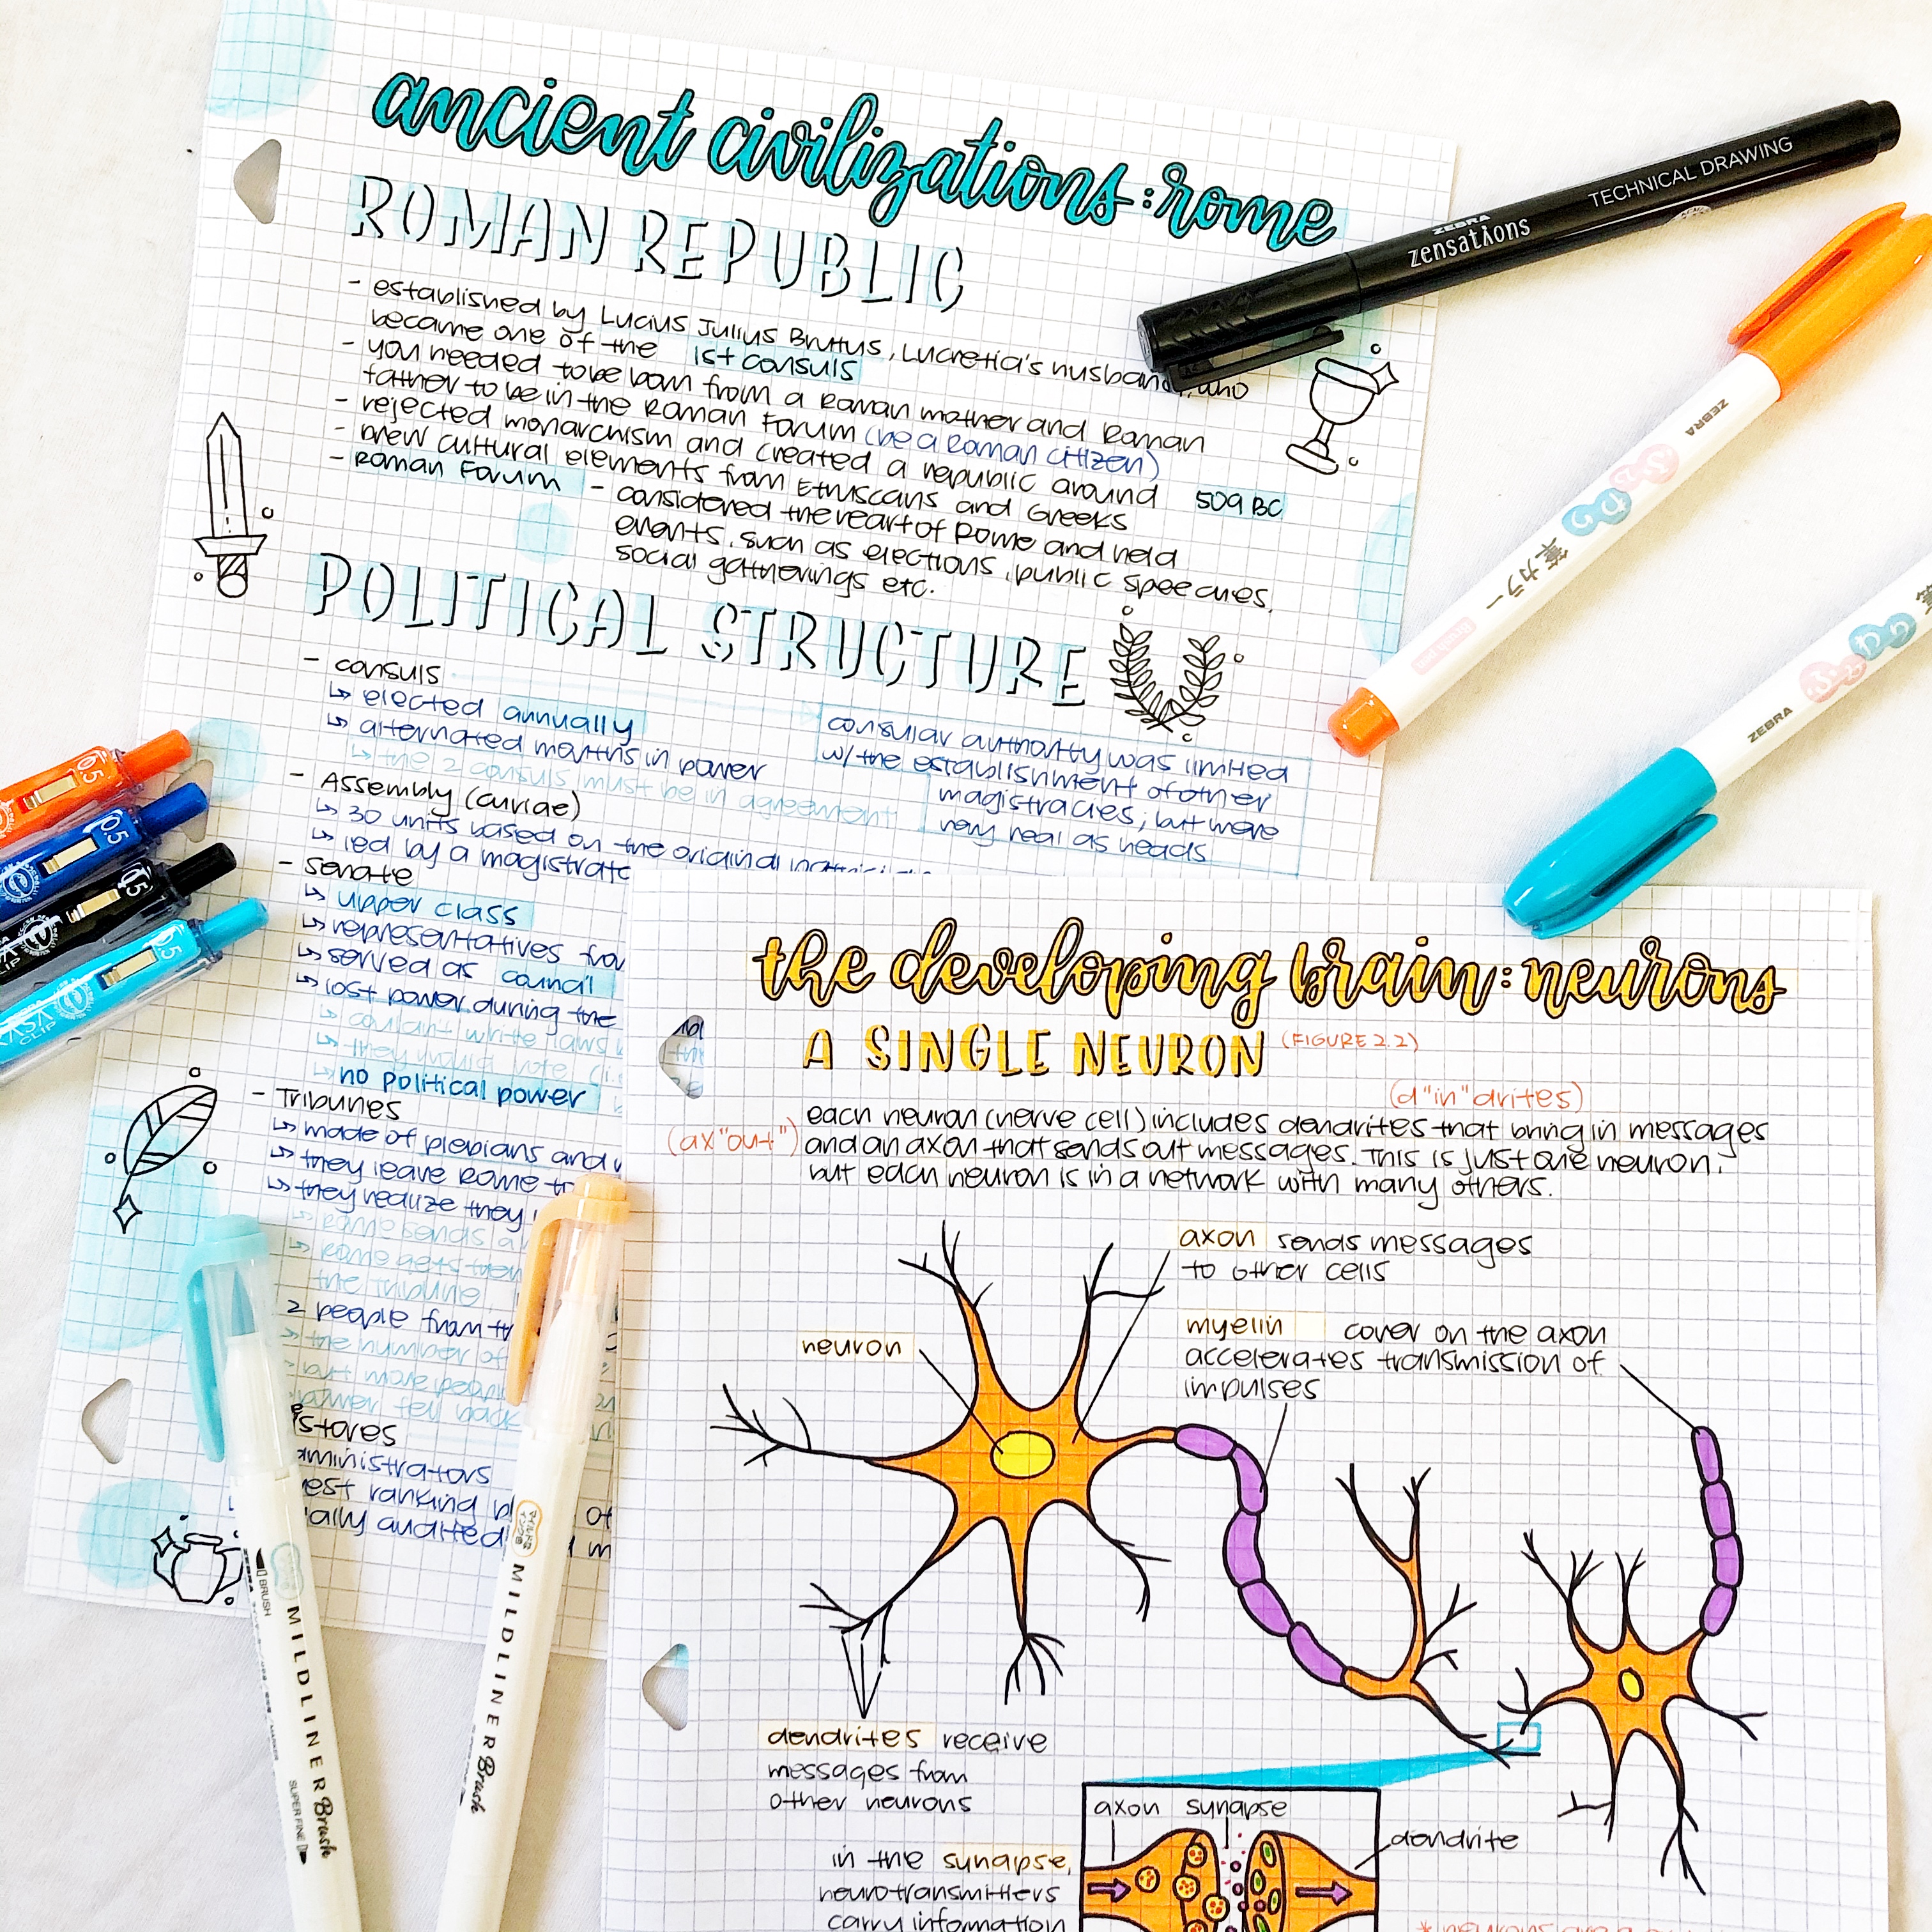 ancient civilizations: rome
ROMAN REPUBLIC
- established by Lucius Julius Bruttus, Lucretia's husband, who
became one of the 1st consuls
- you needed to be born from a Roman mother and Roman
father to be in the Roman Forum (be a Roman citizen)
- rejected monarchism and created a republic around 509 BC
- drew cultural elements from Etruscans and Greeks
- Roman Forum - considered the heart of Rome and held
events, such as elections, public speeches,
social gatherings etc.
POLITICAL STRUCTURE
- consuls
↳ elected annually
↳ alternated months in power
↳ the 2 consuls must be in agreement
consular authority was limited
w/ the establishment of other
magistracies, but were
very real as heads
- Assembly (curiae)
↳ 30 units based on the original
↳ led by a magistrate
- senate
↳ upper class
↳ representatives
↳ served as council
↳ lost power during the
↳ couldn't write laws
↳ they would vote (i.
↳ no political power
- Tribunes
↳ made of plebians and
↳ they leave Rome to
↳ they realize they
↳ Rome sends a
↳ Rome gets
the Tribune,
2 people from
the number of
but more
fell back
stores
ministrators
est ranking
ially audited
the developing brain: neurons
A SINGLE NEURON (FIGURE 2.2)
(d"in"drites)
each neuron (nerve cell) includes dendrites that bring in messages
(ax"out") and an axon that sends out messages. This is just one neuron,
but each neuron is in a network with many others.
axon sends messages
to other cells
neuron
myelin cover on the axon
accelerates transmission of
impulses
dendrites receive
messages from
other neurons
axon synapse
dendrite
in the synapse,
neurotransmitters
carry information
ZEBRA
zensations
TECHNICAL DRAWING
ZEBRA
筆カラー
ZEBRA
0.5
0.5
0.5
0.5
CLIP
CLIP
MILDLINER Brush
BRUSH
SUPER FINE
MILDLINER Brush